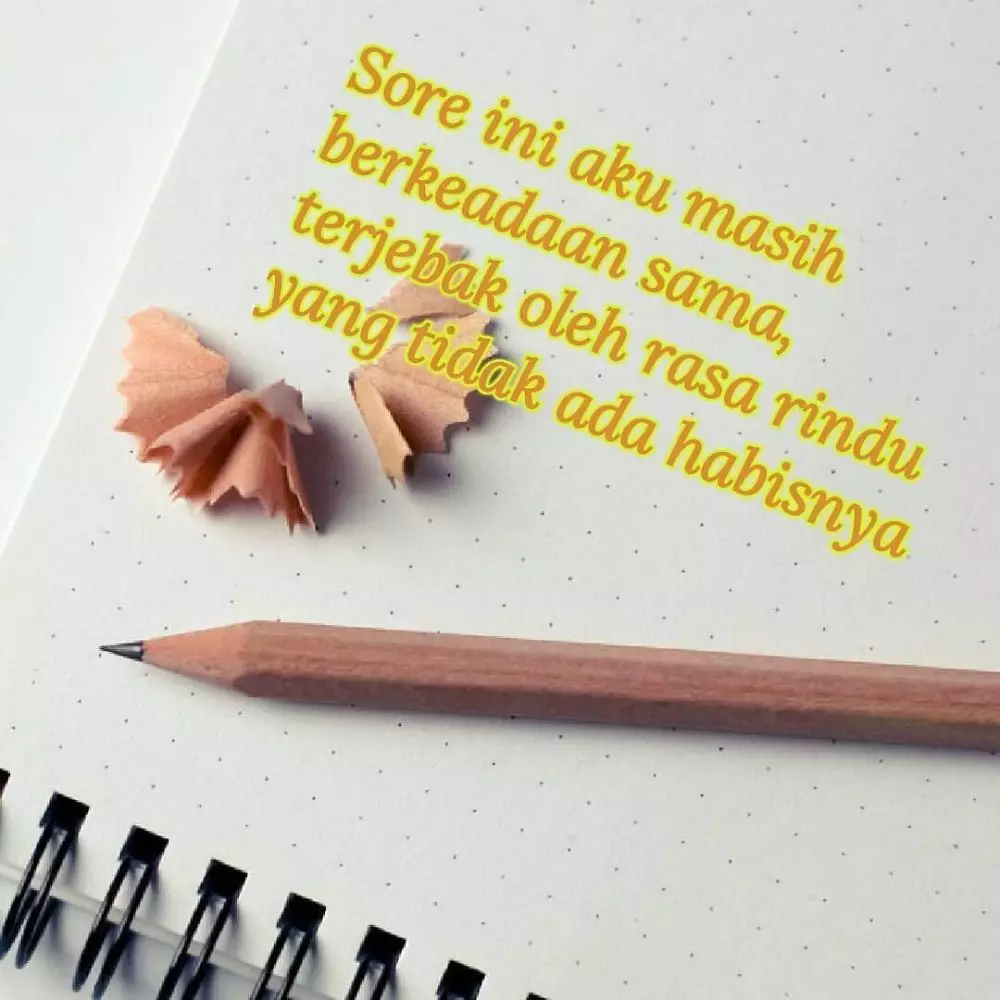 Sore ini aku masih
berkeadaan sama,
terjebak oleh rasa rindu
yang tidak ada habisnya